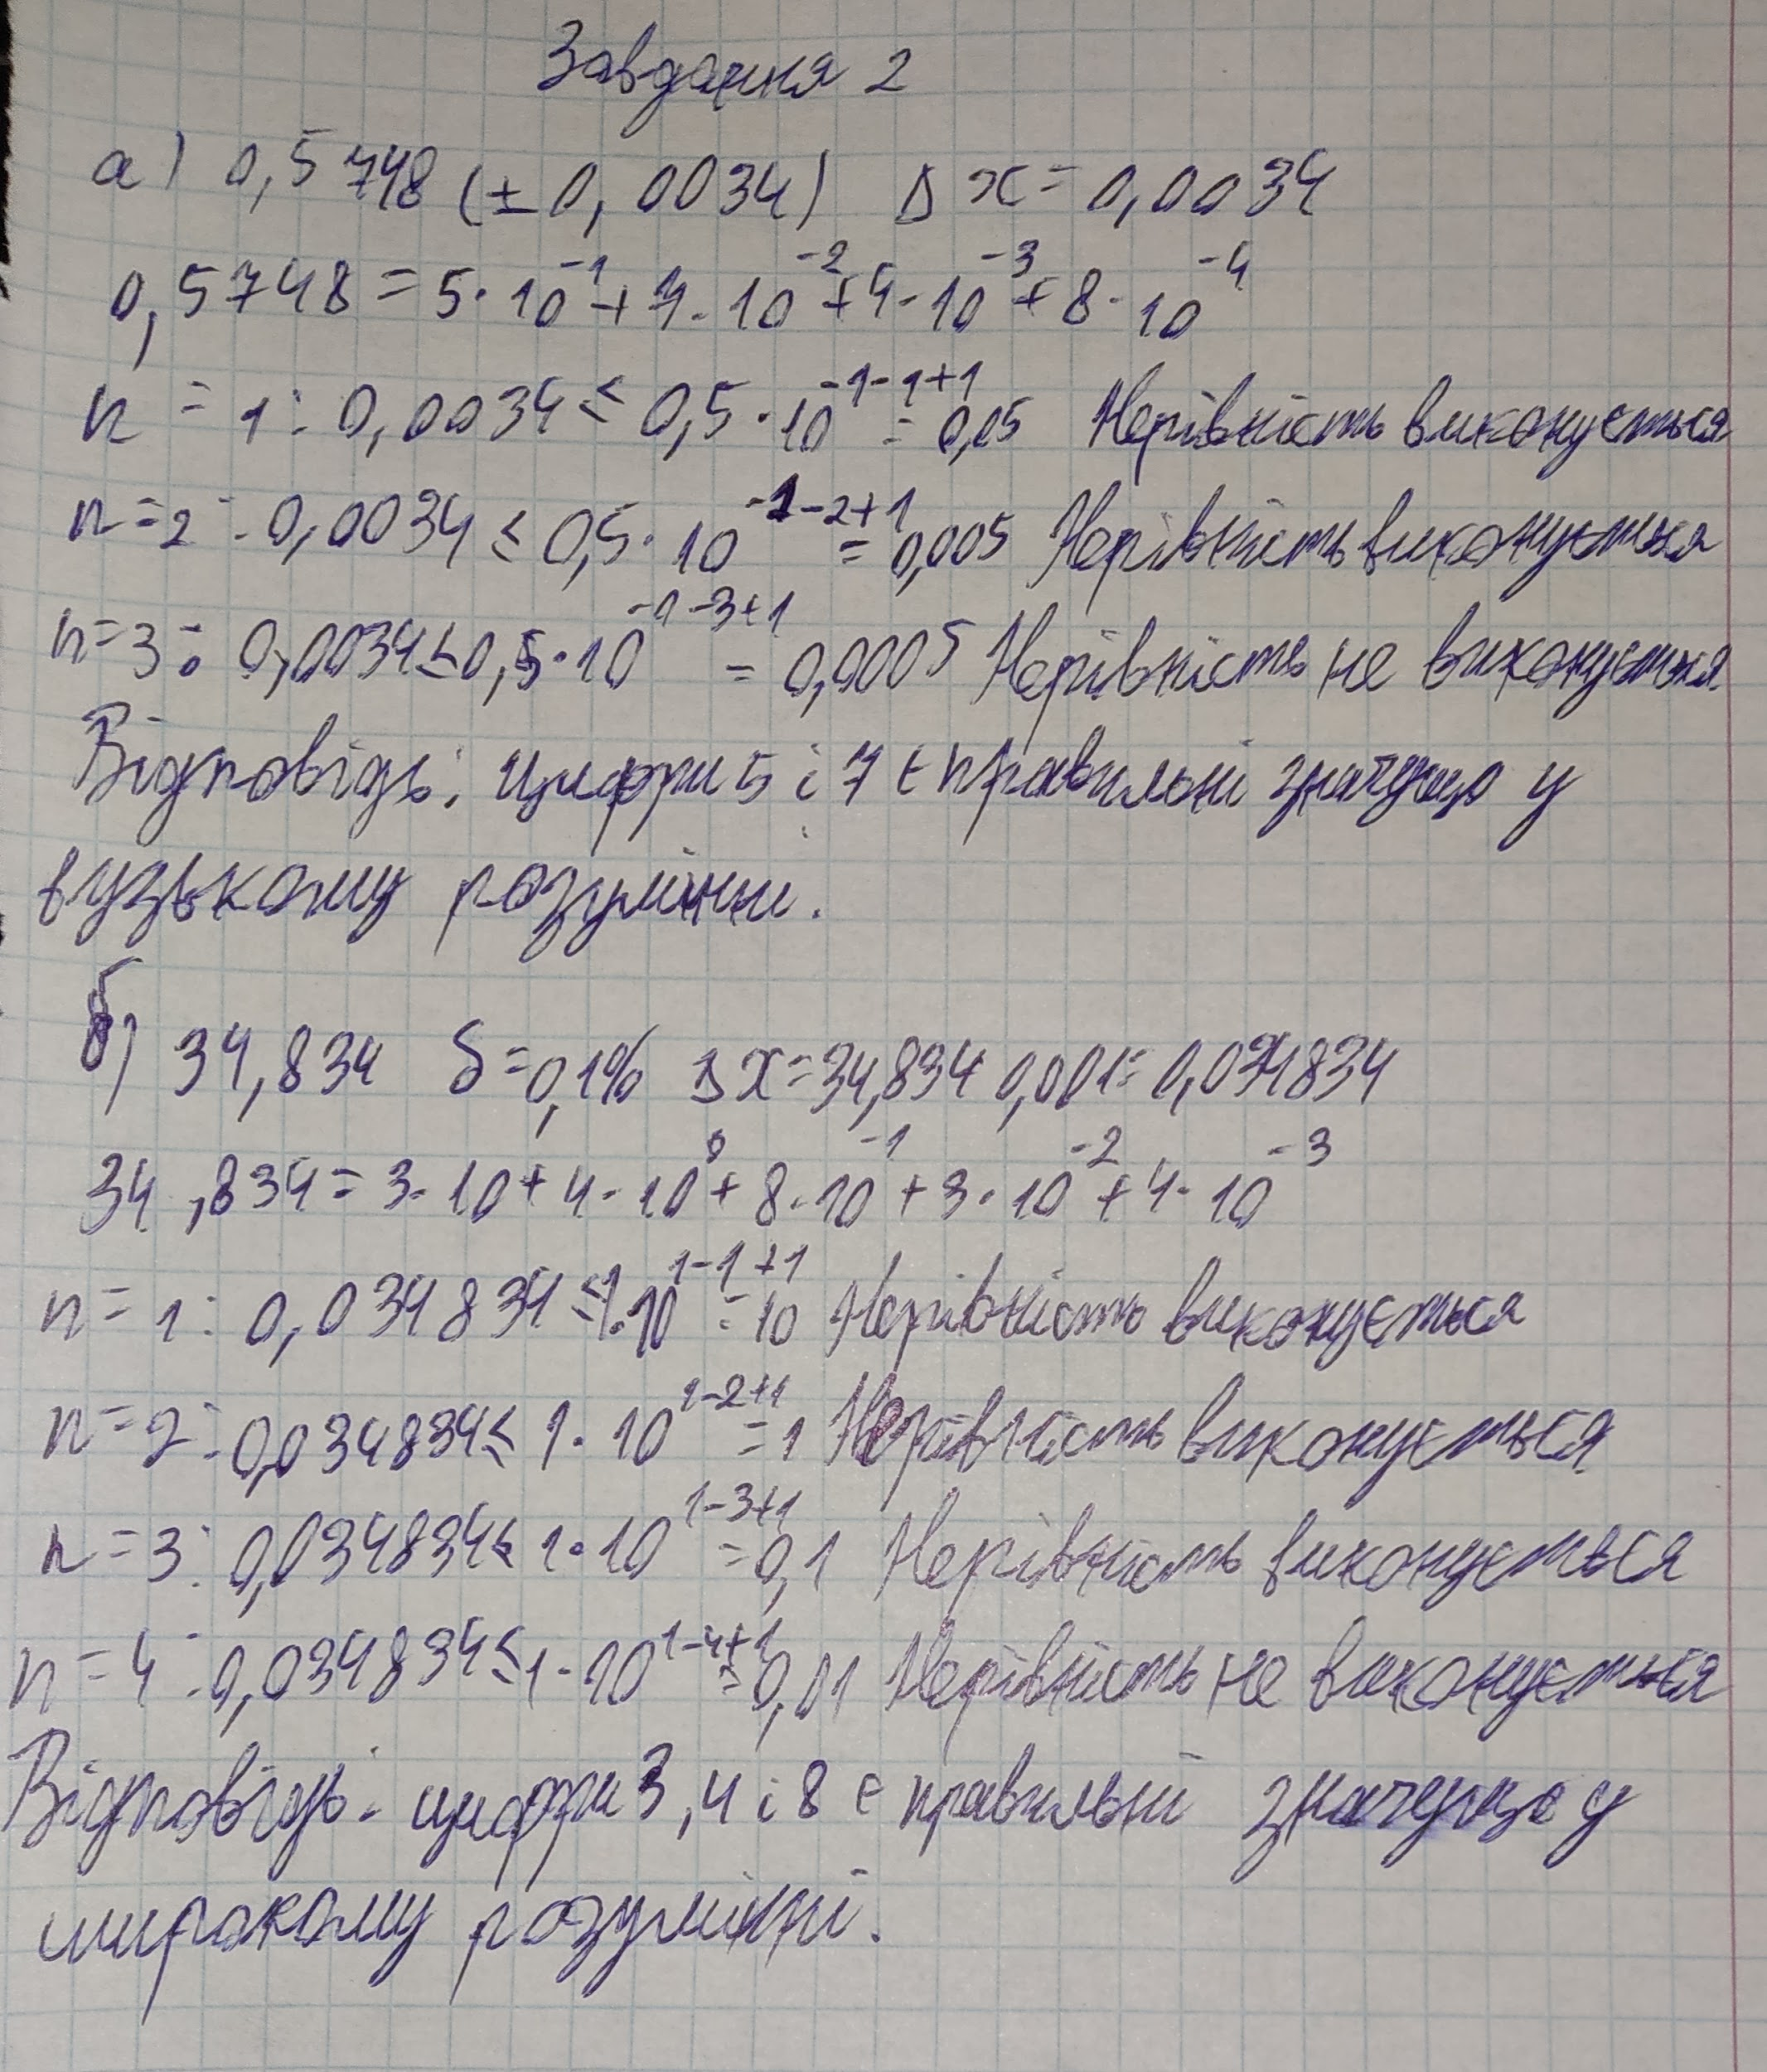 Завдання 2
а) 0,5748 (± 0,0034) Δx = 0,0034
0,5748 = 5·10⁻¹ + 7·10⁻² + 4·10⁻³ + 8·10⁻⁴
n = 1: 0,0034 ≤ 0,5·10⁻¹⁻¹⁺¹ = 0,05 Нерівність виконується
n = 2: 0,0034 ≤ 0,5·10⁻¹⁻²⁺¹ = 0,005 Нерівність виконується
n = 3: 0,0034 ≤ 0,5·10⁻¹⁻³⁺¹ = 0,0005 Нерівність не виконується
Відповідь: цифри 5 і 7 є правильні значущі у
вузькому розумінні.
б) 34,834 δ = 0,1% Δx = 34,834·0,001 = 0,034834
34,834 = 3·10 + 4·10⁰ + 8·10⁻¹ + 3·10⁻² + 4·10⁻³
n = 1: 0,034834 ≤ 1·10¹⁻¹⁺¹ = 10 Нерівність виконується
n = 2: 0,034834 ≤ 1·10¹⁻²⁺¹ = 1 Нерівність виконується
n = 3: 0,034834 ≤ 1·10¹⁻³⁺¹ = 0,1 Нерівність виконується
n = 4: 0,034834 ≤ 1·10¹⁻⁴⁺¹ = 0,01 Нерівність не виконується
Відповідь: цифри 3, 4 і 8 є правильні значущі у
широкому розумінні.